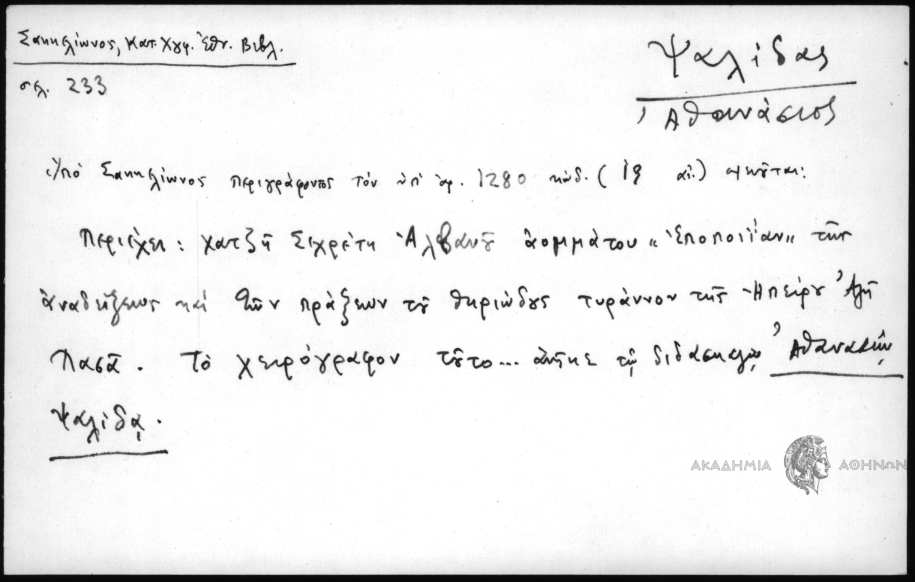 Σακκελίωνος, Κατ. Χγφ. Ἐθν. Βιβλ.
σελ. 233
Ψαλίδας
Ἀθανάσιος
Ὑπὸ Σακκελίωνος περιγράφοντος τὸν ὑπ' ἀρ. 1280 κώδ. (19 αἰ.)
Περιέχει: Χατζῆ Σεχρέτη Ἀλβανοῦ ἀομμάτου «Ἐποποιΐαν» τῆς
ἀναδείξεως καὶ τῶν πράξεων τοῦ θηριώδους τυράννου τῆς Ἠπείρου Ἀλῆ
Πασᾶ. Τὸ χειρόγραφον τοῦτο... ἀνῆκε τῷ διδασκάλῳ Ἀθανασίῳ
Ψαλίδᾳ.
ΑΚΑΔΗΜΙΑ ΑΘΗΝΩΝ